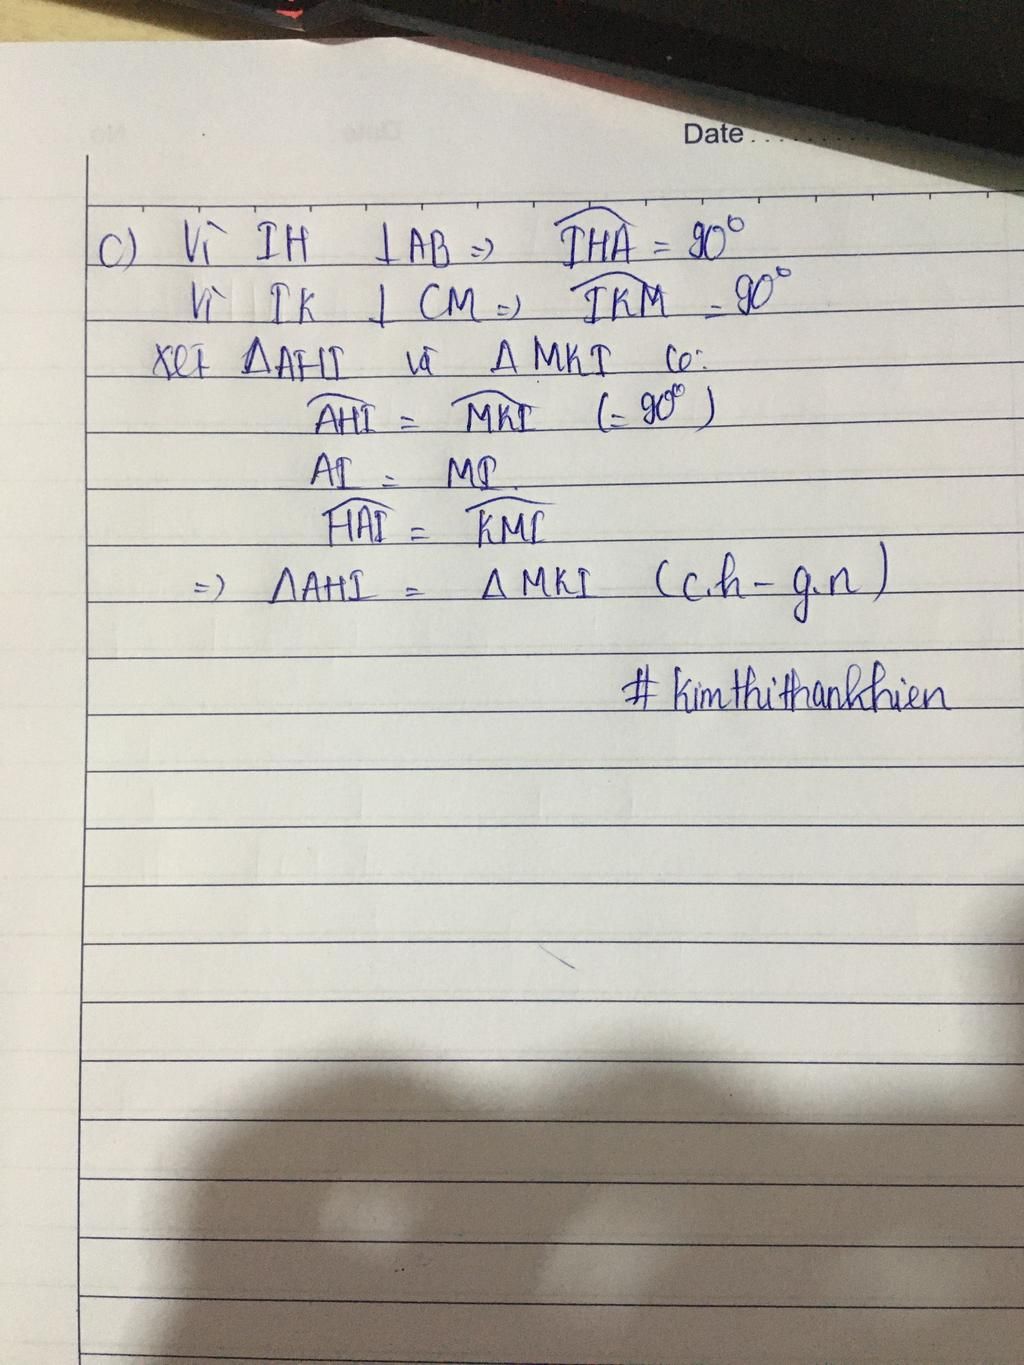 Date..........
c) Vì IH ⊥ AB => \widehat{IHA} = 90°
Vì IK ⊥ CM => \widehat{IKM} = 90°
xét ΔAHI và ΔMKI có:
\widehat{AHI} = \widehat{MKI} (= 90°)
AI = MI.
\widehat{HAI} = \widehat{KMI}
=> ΔAHI = ΔMKI (c.h - g.n)
# kimthithanhhien